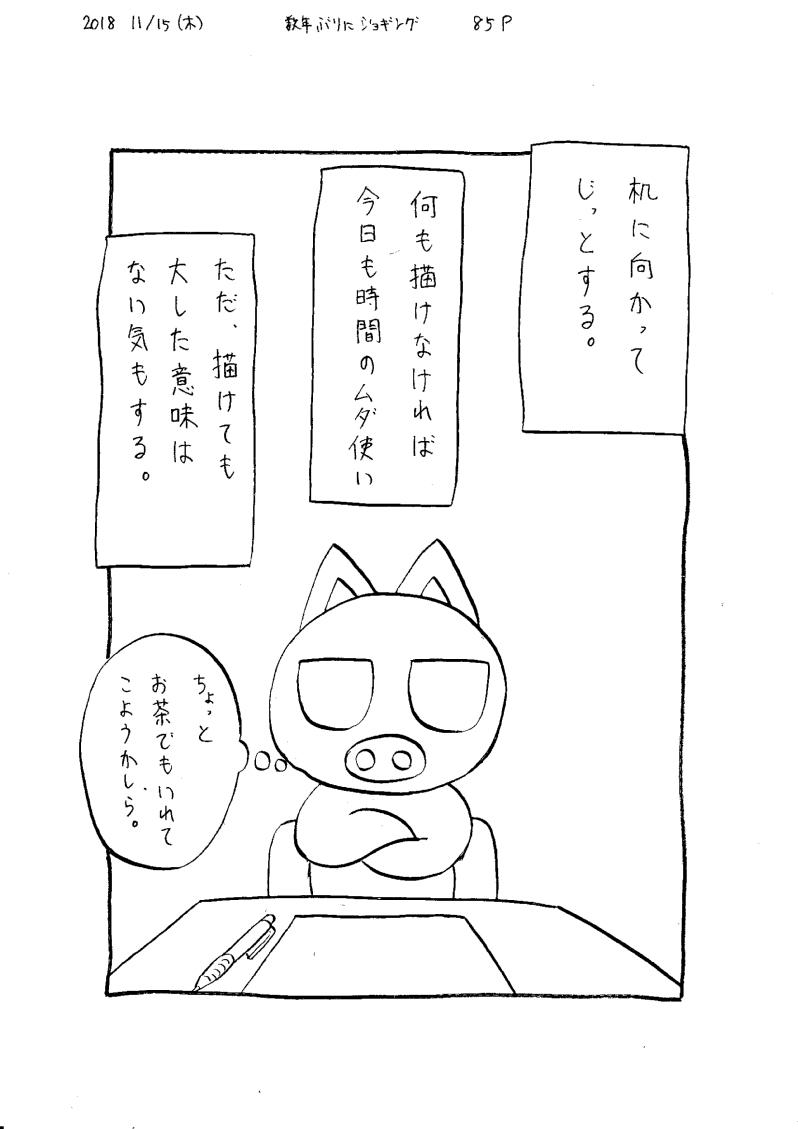 2018 11/15(木) 数年ぶりにジョギング 85P
机に向かって
じっとする。
何も描けなければ
今日も時間のムダ使い
ただ、描けても
大した意味は
ない気もする。
ちょっと
お茶でもいれて
こようかしら。